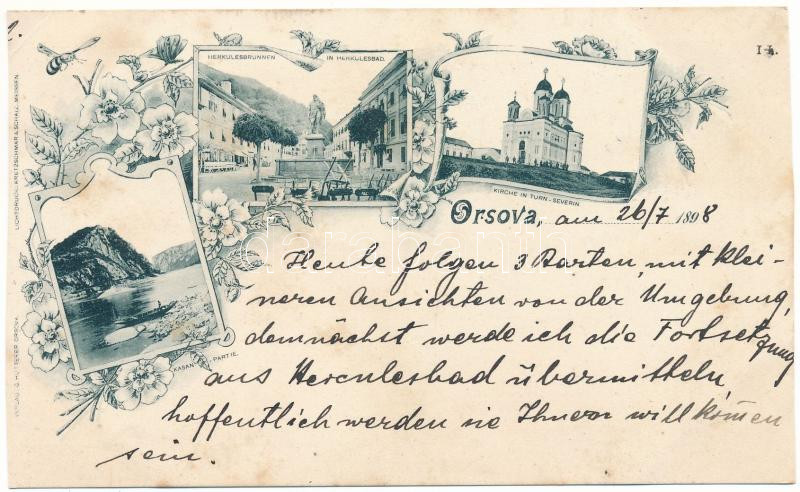 2.
I h.
HERKULESBRUNNEN IN HERKULESBAD.
KIRCHE IN TURN-SEVERIN
KASAN-PARTIE.
LICHTDRUCK: KRETZSCHMAR & SCHALZ, MEISSEN.
Orsova, am 26/7 1898
Heute folgen 3 Karten, mit klei-
neren Ansichten von der Umgebung,
demnächst werde ich die Fortsetzung
aus Herculesbad übermitteln,
hoffentlich werden sie Ihnen will komen
sein.
darabanth